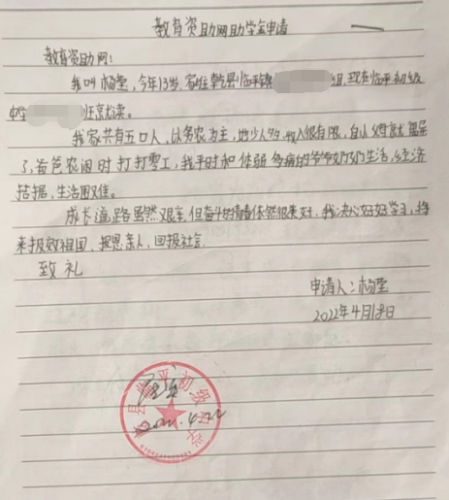 教育资助网助学金申请
教育资助网：
我叫杨莹，今年13岁，家住乾县临平镇组，现在临平初级
中学就读。
我家共有五口人，以务农为主，地少人多，收入很有限，自从父母就离
了，爸爸农闲时打打零工，我平时和体弱多病的爷爷奶奶生活，经济
拮据，生活困难。
成长道路虽然艰辛，但奋斗的精神依然很来对，我决心好好学习，将
来报效祖国，报恩亲人，回报社会。
致礼
申请人：杨莹
2022年4月18日
县临平初级中学
2022.4.22